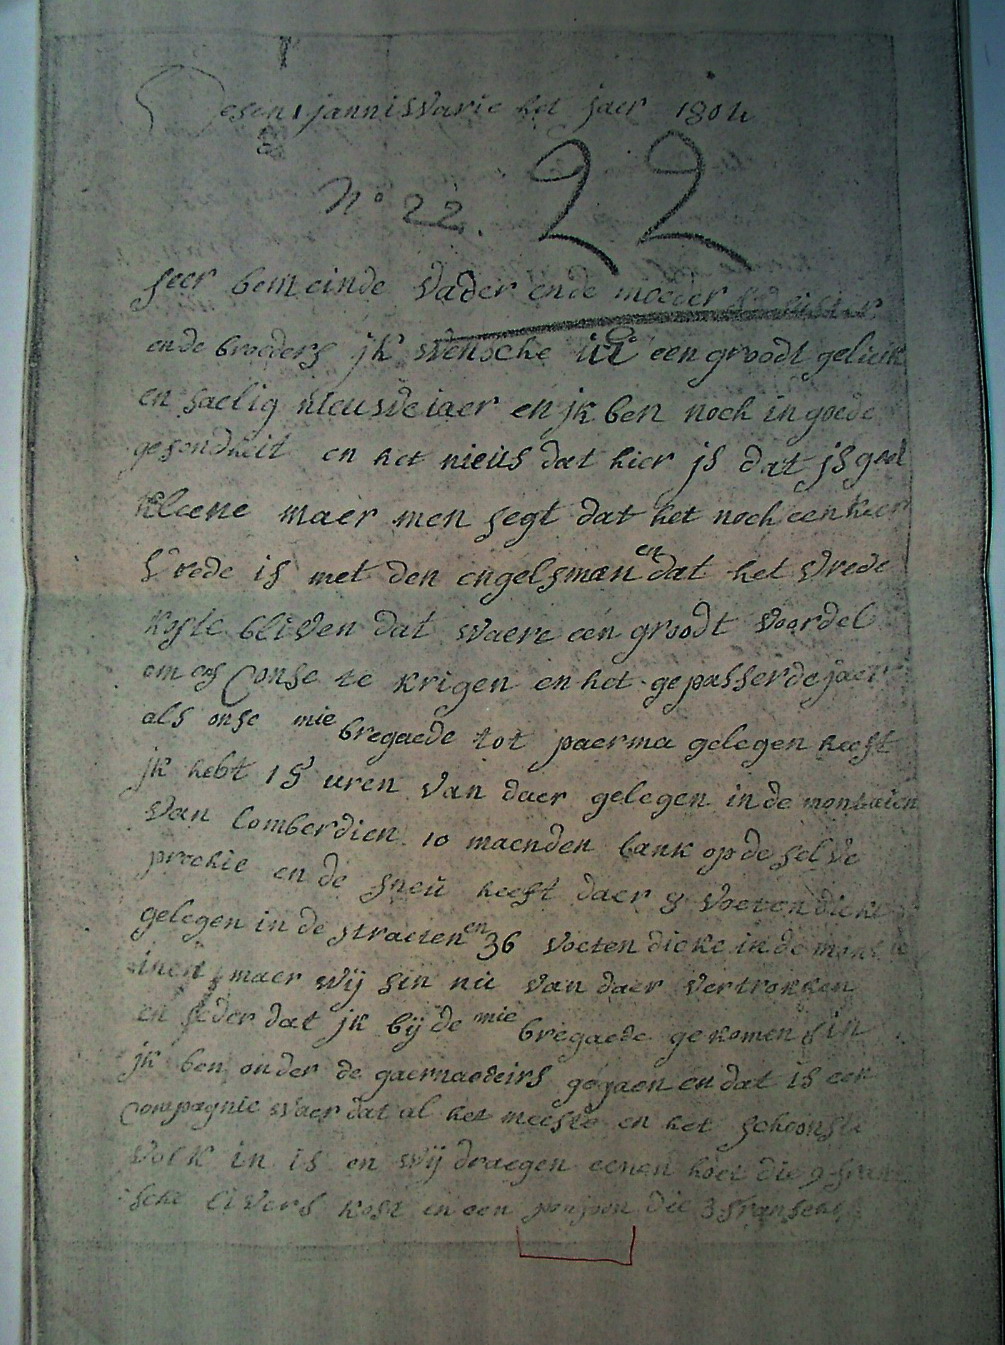 Desen 1 jannisvarie het jaer 1802
22
N° 22.
seer bemeinde vader ende moeder
ende broeders jk wensche ue een groodt geliuk
en saelig nieusdeiaer en jk ben noch in goede
gesondheit en het nieus dat hier js dat js geel
kleene maer men segt dat het noch een keer
vrede is met den engelsman en dat het vrede
koste bliven dat waere een groodt voordel
om ons Conse te krigen en het gepasserde jaer
als onse mie bregaede tot paerma gelegen heeft
jk hebt 15 uren van daer gelegen in de montaien
van lomberdien 10 maenden lank op de selve
prochie en de sneu heeft daer 8 voeten dicke
gelegen in de straeten en 36 voeten dicke in de
maer wij sin nu van daer vertrokken
en seder dat jk bij de mie bregaede gekomen sin
jk ben onder de gaernaedeirs gegaen en dat is een
Compagnie waer dat al het meeste en het schoonste
volk in is en wij draegen eenen hoet die 9 fran
sche livers kost en een die 3 fransche